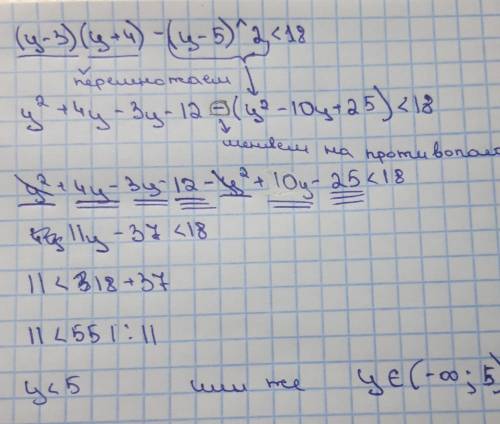 (y-3)(y+4) - (y-5)^2 < 18
перемножаем
y² + 4y - 3y - 12 - (y² - 10y + 25) < 18
меняем на противопол
y² + 4y - 3y - 12 - y² + 10y - 25 < 18
11y - 37 < 18
11 < 18 + 37
11 < 55 | : 11
y < 5 или же y ∈ (-∞; 5)